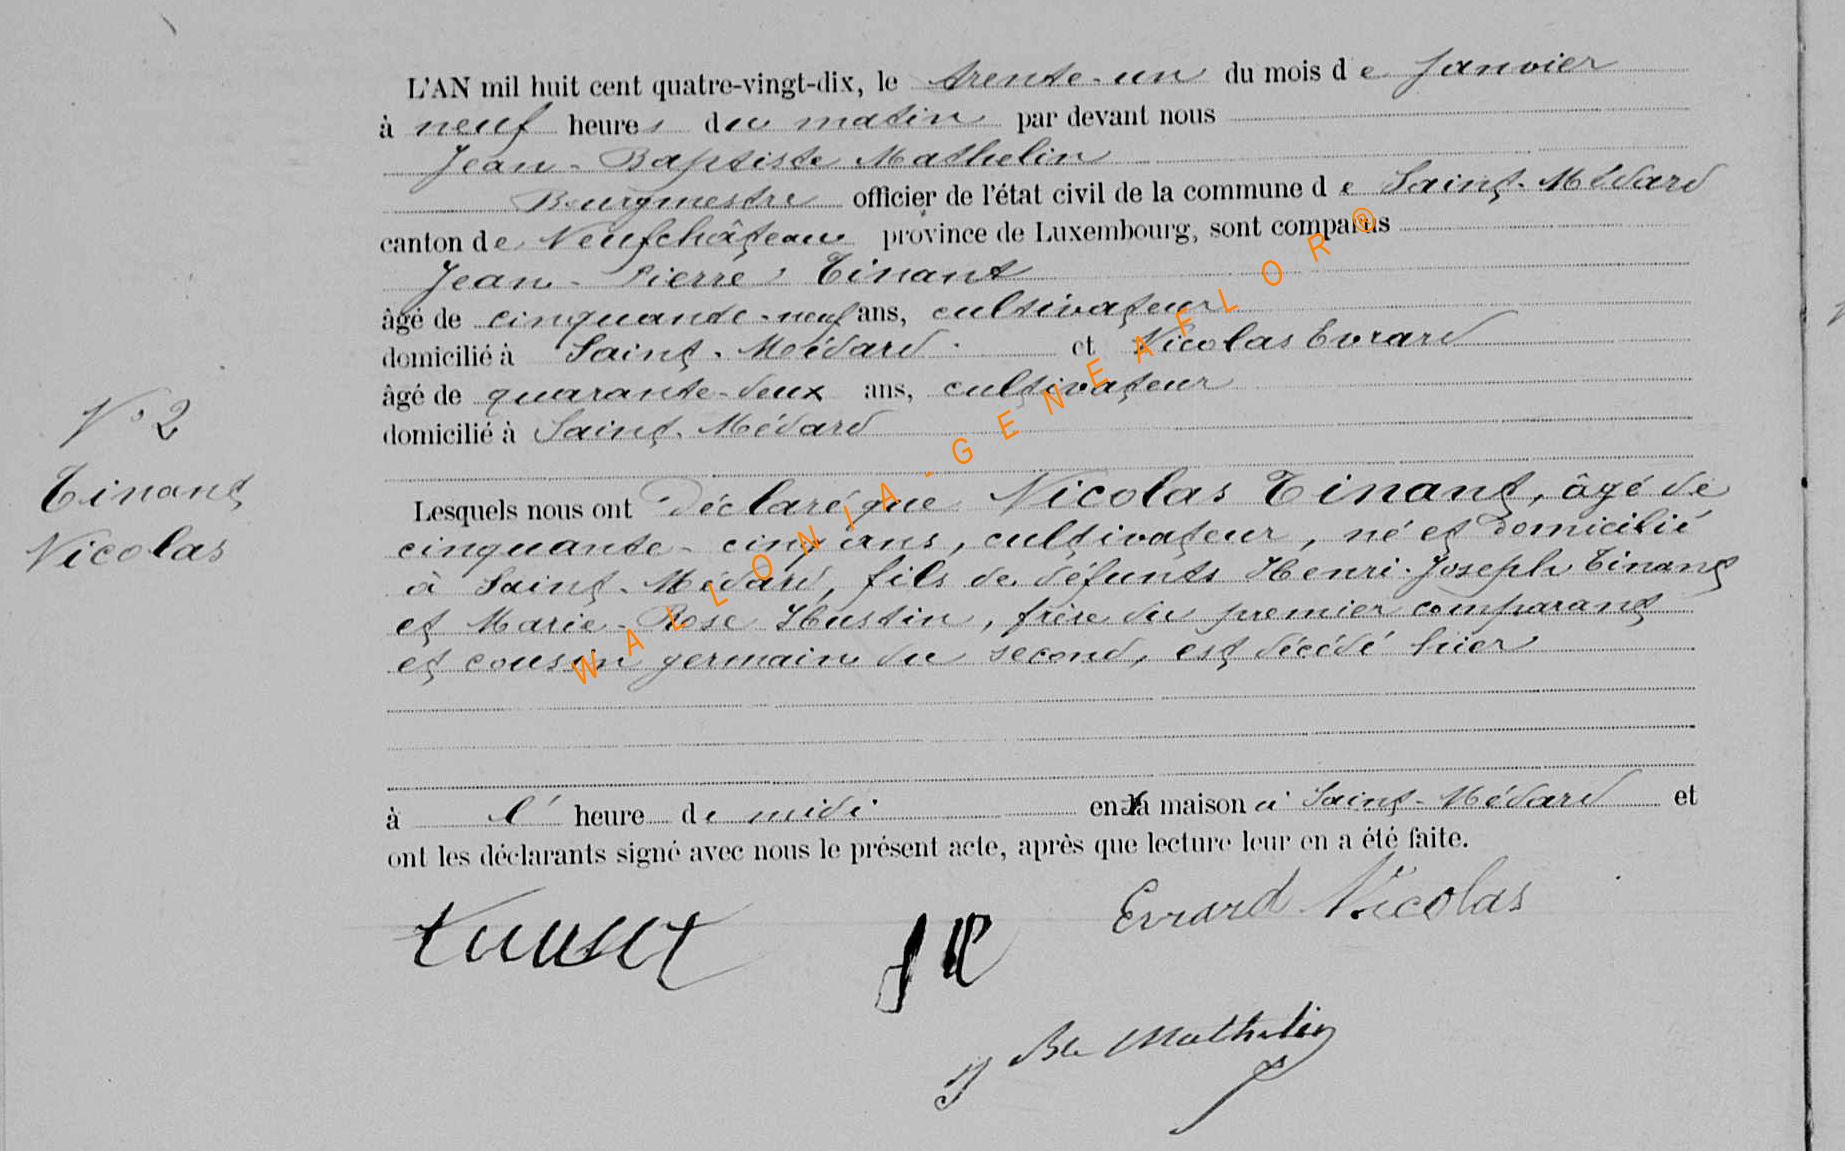 L'AN mil huit cent quatre-vingt-dix, le trente-un du mois de Janvier
à neuf heures du matin par devant nous
Jean-Baptiste Mathelin
Bourgmestre officier de l'état civil de la commune de Saint-Médard
canton de Neufchâteau province de Luxembourg, sont comparus
Jean-Pierre Tinant
âgé de cinquante-neuf ans, cultivateur
domicilié à Saint-Médard et Nicolas Evrard
âgé de quarante-deux ans, cultivateur
domicilié à Saint-Médard
N° 2
Tinant
Nicolas
Lesquels nous ont Déclaré que Nicolas Tinant, âgé de
cinquante-cinq ans, cultivateur, né et domicilié
à Saint-Médard, fils de défunts Henri-Joseph Tinant
et Marie-Rose Hustin, frère du premier comparant
et cousin germain du second, est décédé hier
à l' heure de midi en la maison à Saint-Médard et
ont les déclarants signé avec nous le présent acte, après que lecture leur en a été faite.
Evrard Nicolas
J Bte Mathelin
WALLONIA-GENEAFLOR®